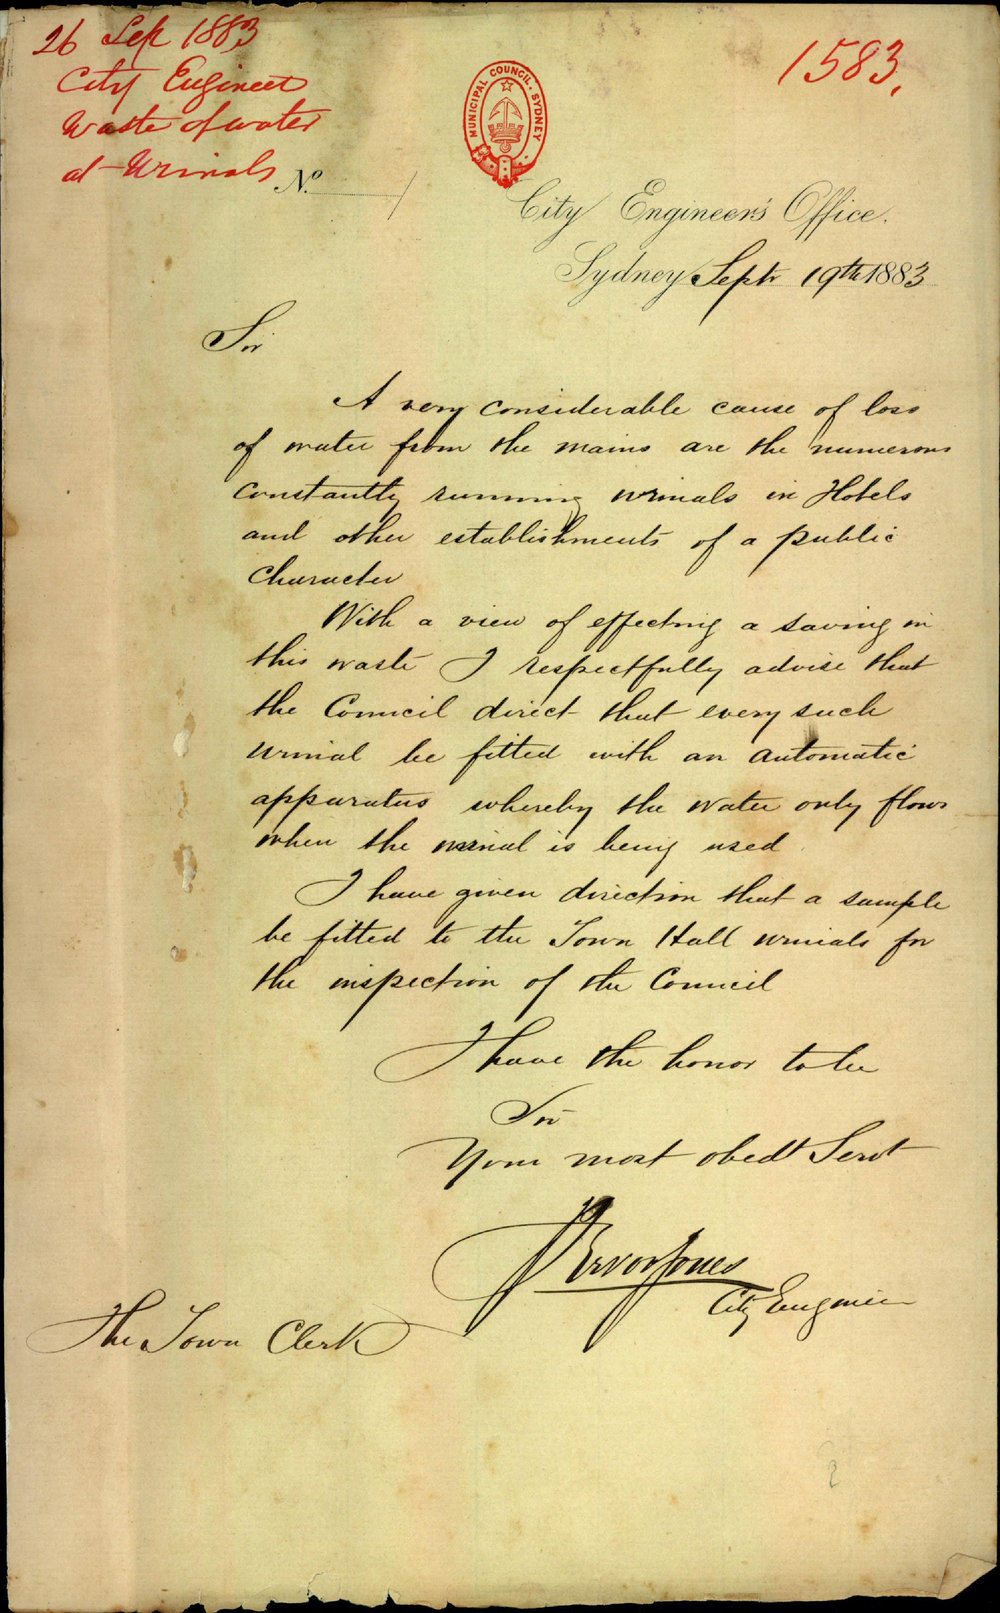 26 Sep 1883
City Engineer
Waste of water
at Urinals
1583.
MUNICIPAL COUNCIL. SYDNEY
No.
City Engineer's Office.
Sydney Septr 19th 1883
Sir
A very considerable cause of loss
of water from the mains are the numerous
constantly running urinals in Hotels
and other establishments of a public
character
With a view of effecting a saving in
this waste I respectfully advise that
the Council direct that every such
urinal be fitted with an automatic
apparatus whereby the water only flows
when the urinal is being used.
I have given direction that a sample
be fitted to the Town Hall urinals for
the inspection of the Council
I have the honor to be
Sir
Your most obedt Servt
Trevor Jones
City Engineer
The Town Clerk